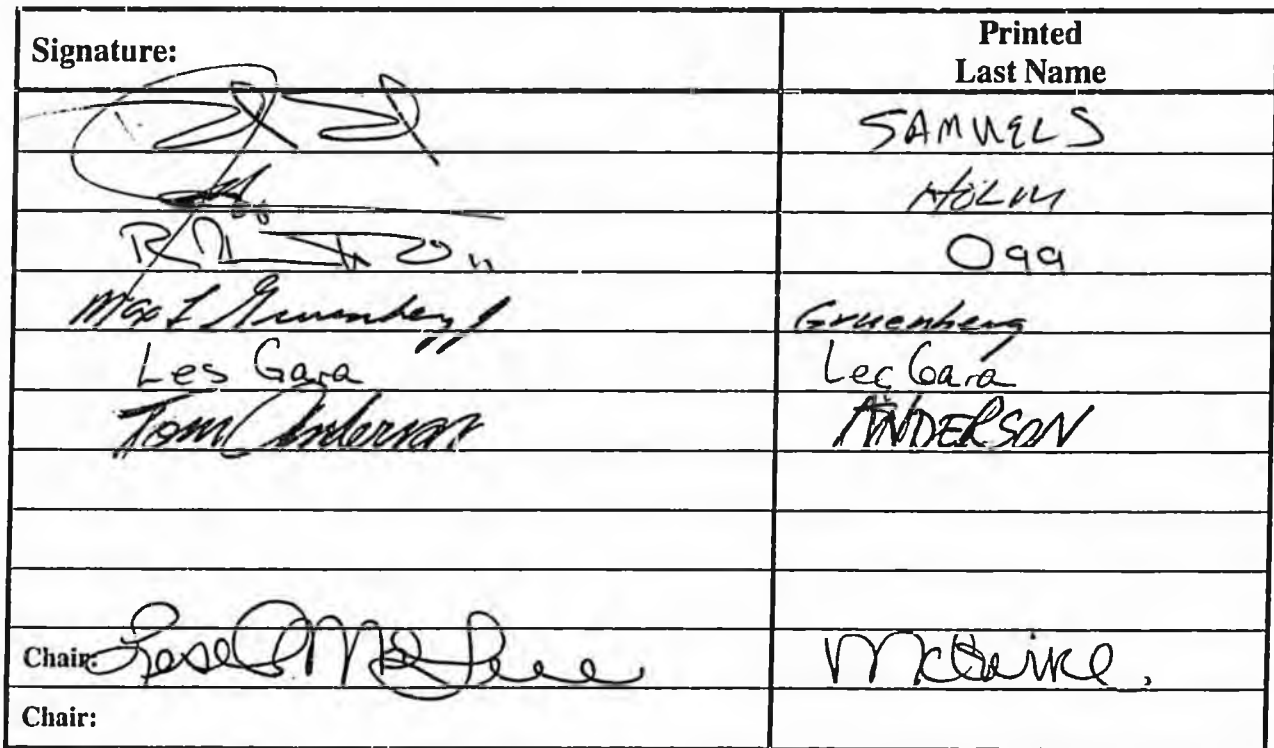 Signature:
Printed
Last Name
SAMUELS
HOLM
Ogg
Max F Gruenberg Gruenberg
Les Gara Les Gara
Tom Anderson ANDERSON
Chair: McGuire McGuire,
Chair: